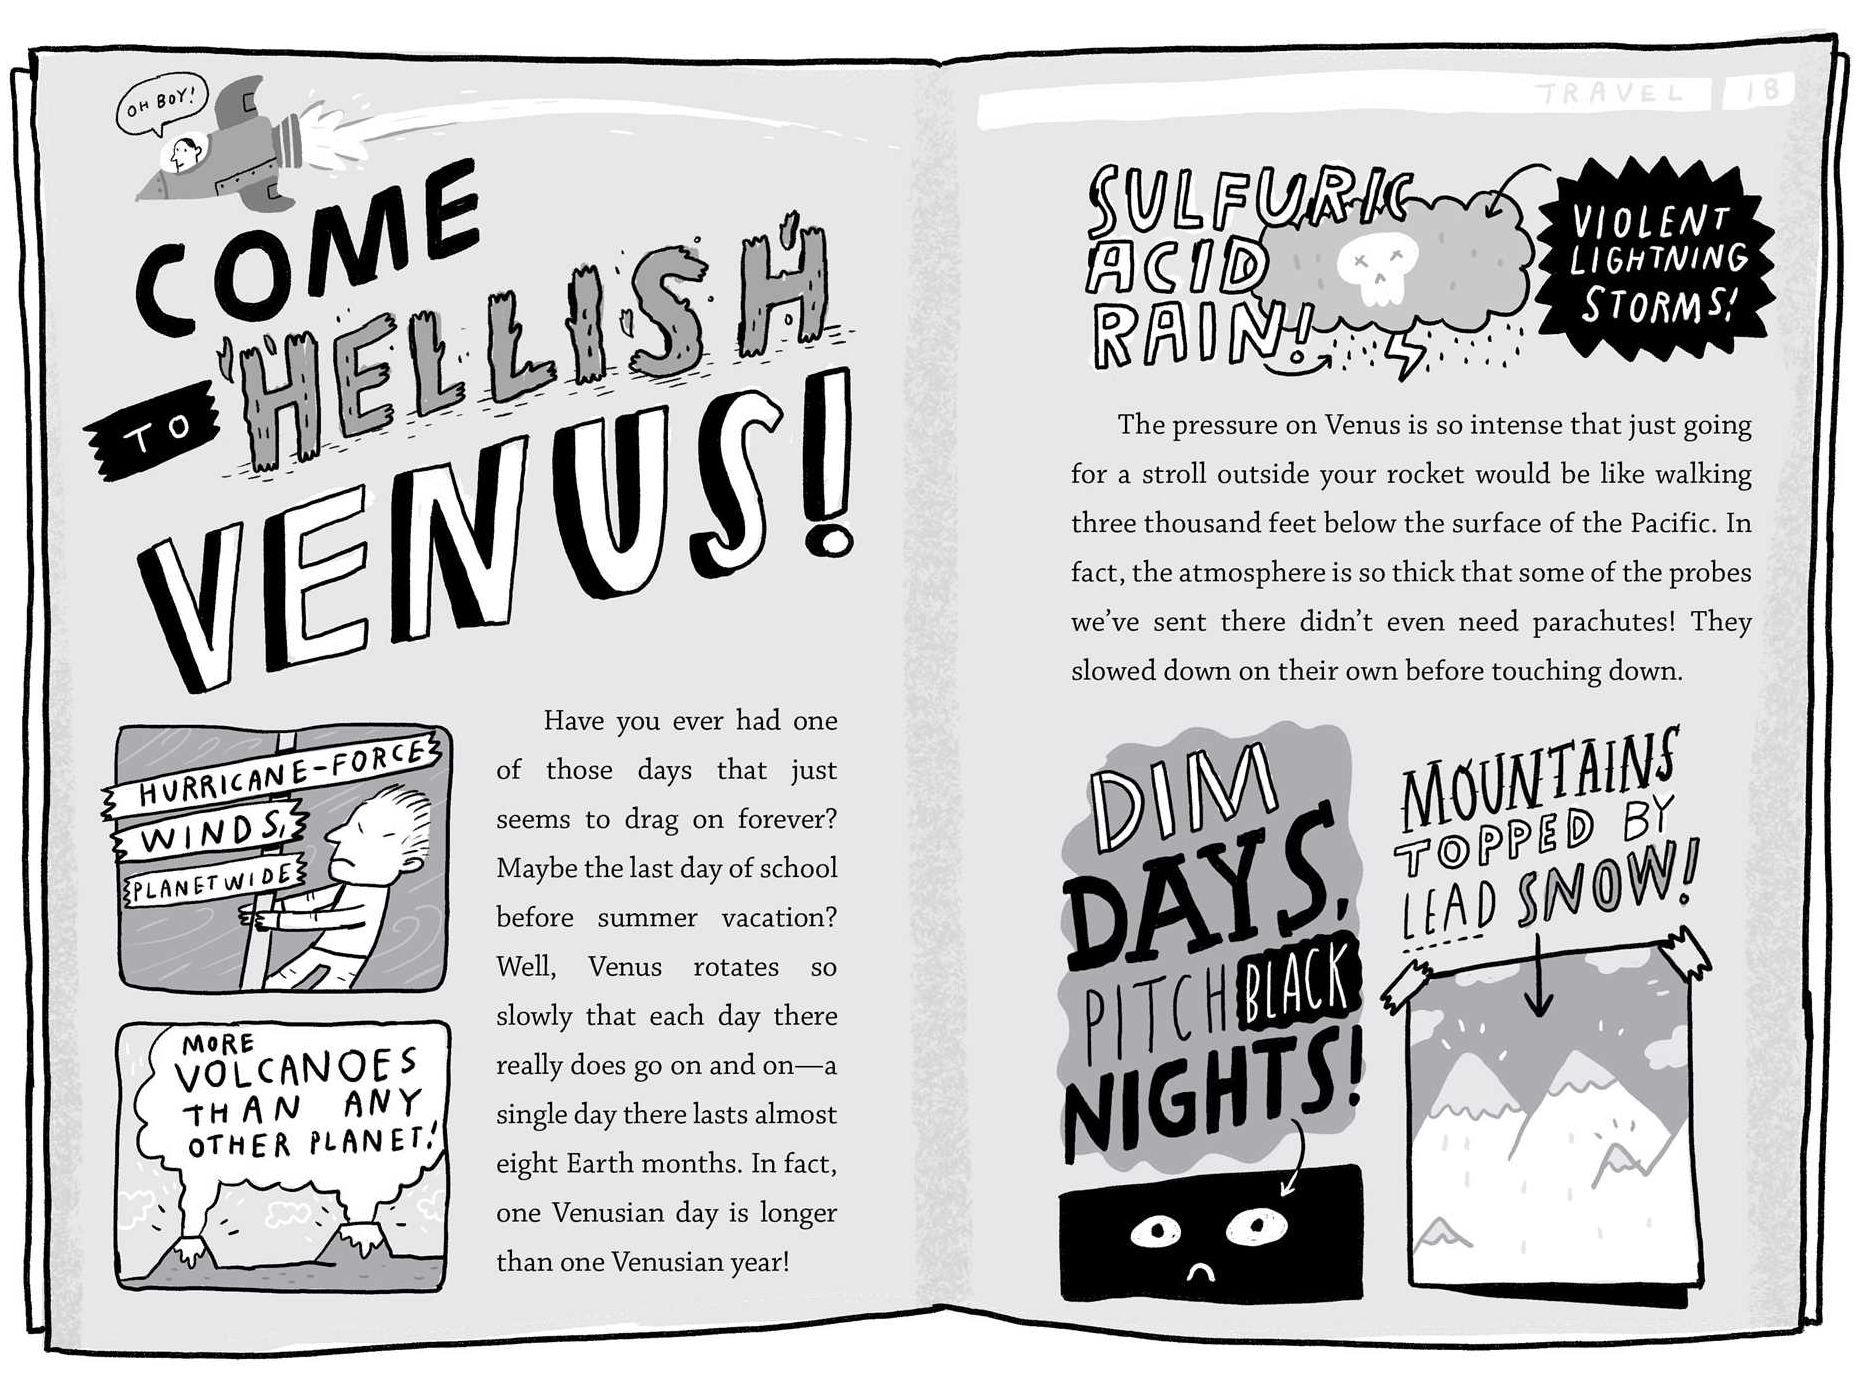 OH BOY!
COME
TO HELLISH
VENUS!
HURRICANE-FORCE
WINDS,
PLANETWIDE
MORE
VOLCANOES
THAN ANY
OTHER PLANET!
Have you ever had one
of those days that just
seems to drag on forever?
Maybe the last day of school
before summer vacation?
Well, Venus rotates so
slowly that each day there
really does go on and on—a
single day there lasts almost
eight Earth months. In fact,
one Venusian day is longer
than one Venusian year!
TRAVEL 1B
SULFURIC
ACID
RAIN!
VIOLENT
LIGHTNING
STORMS!
The pressure on Venus is so intense that just going
for a stroll outside your rocket would be like walking
three thousand feet below the surface of the Pacific. In
fact, the atmosphere is so thick that some of the probes
we’ve sent there didn’t even need parachutes! They
slowed down on their own before touching down.
DIM
DAYS,
PITCH BLACK
NIGHTS!
MOUNTAINS
TOPPED BY
LEAD SNOW!